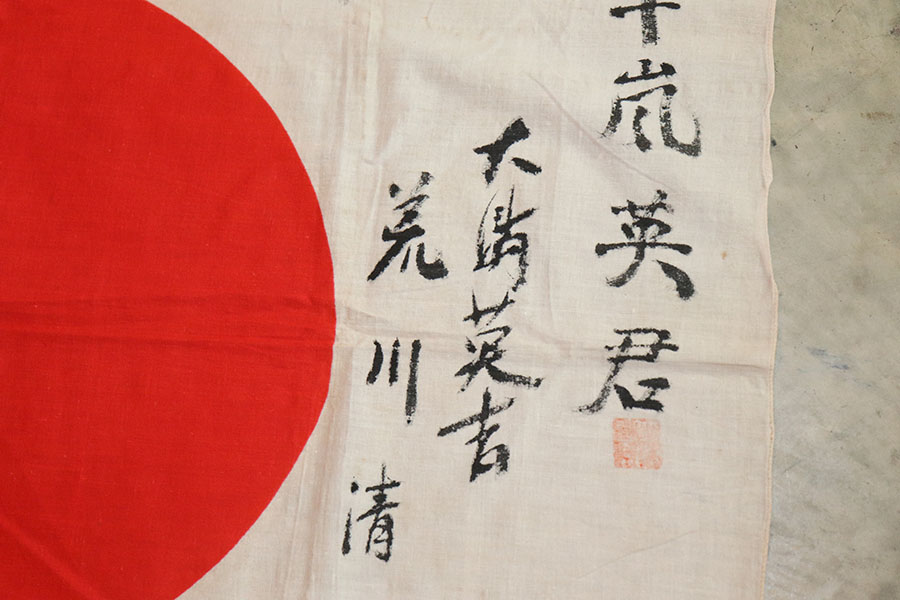 十嵐英君
大嶋英吉
荒川 清